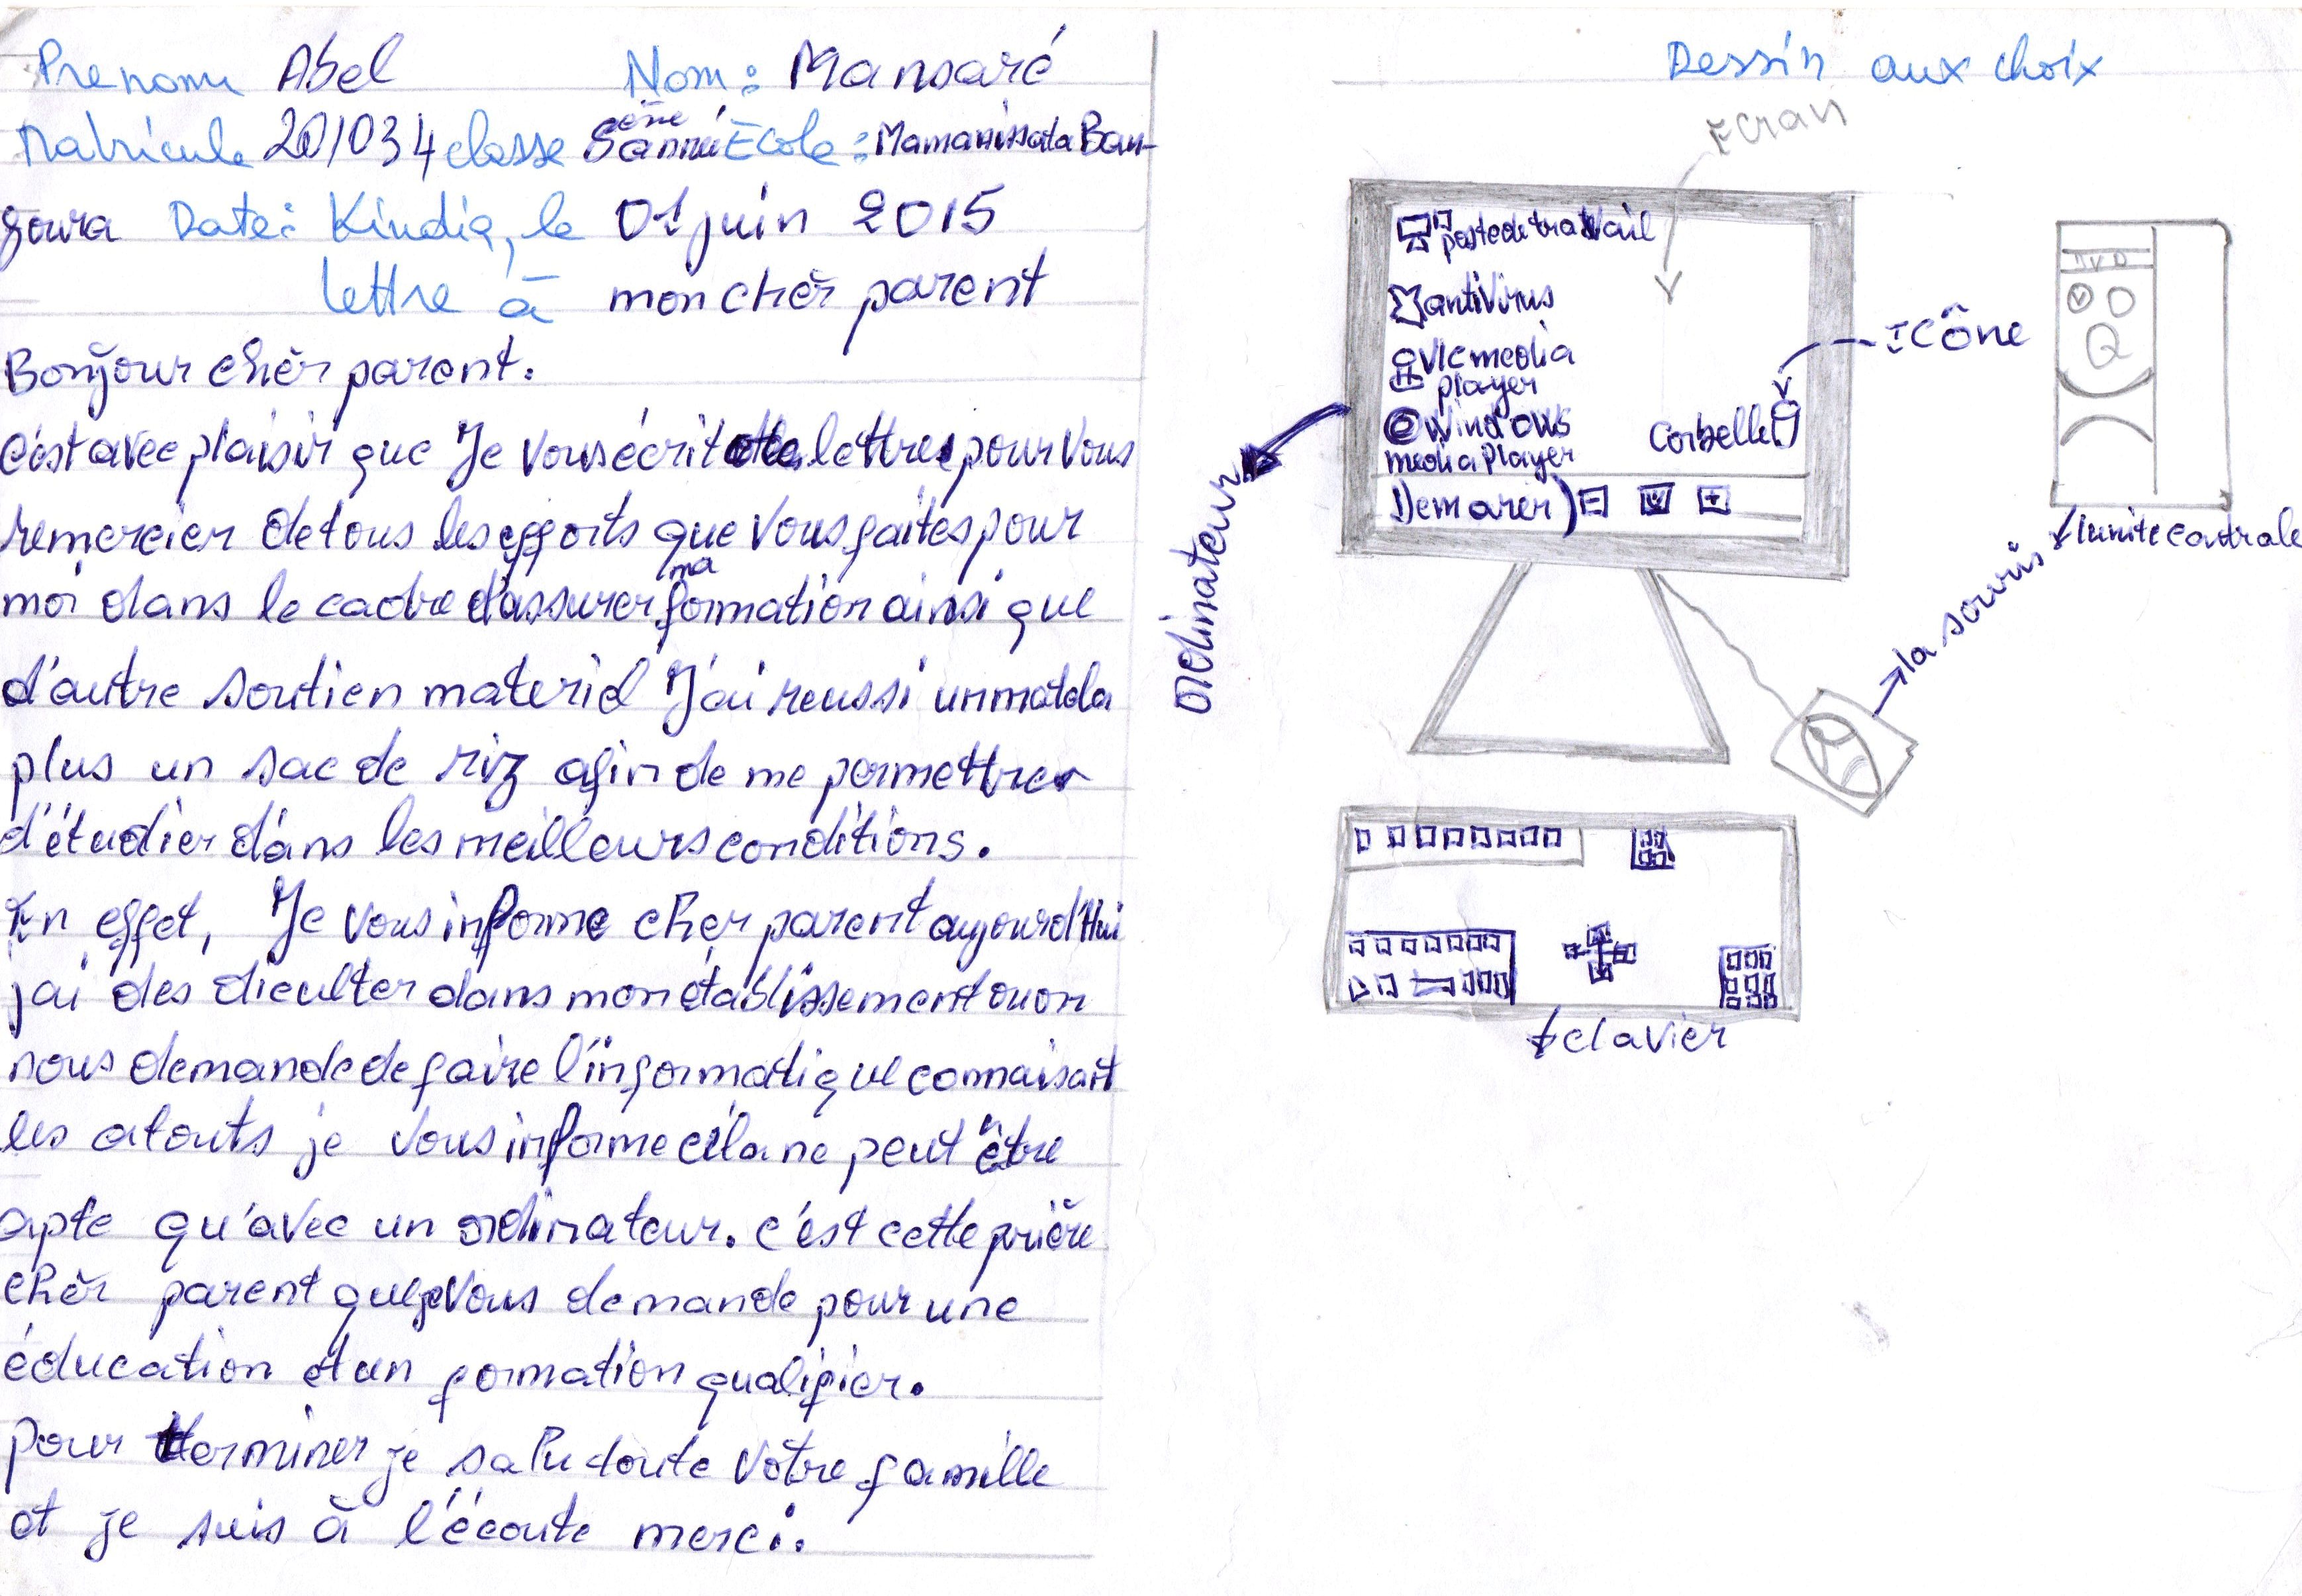 Prenom Abel Nom: Mansaré
Matricule 201034 classe 8ème année Ecole: Mamanissata Ban-
goura Date: Kindia, le 01 juin 2015
lettre à mon chèr parent
Bonjour chèr parent.
c'est avec plaisir que Je vous écrit cette lettre pour vous
remercier de tous les efforts que vous faites pour
moi dans le cadre d'assurer ma formation ainsi que
d'autre soutien materiel J'ai reussi un matela
plus un sac de riz afin de me permettre
d'étudier dans les meilleurs conditions.
En effet, Je vous informe cher parent aujourd'Hui
j'ai des diculter dans mon établissement ou on
nous demande de faire l'informatique connaisant
les atouts je vous informe céla ne peut être
apte qu'avec un ordinateur. c'est cette prière
chèr parent que je vous demande pour une
éducation et un formation qualifier.
pour terminer je salu toute votre famille
et je suis à l'écoute merci.
Dessin aux choix
Ecran
poste de travail
antivirus
vlc media
player
windows
media player
Corbelle
Demarer
Icône
ordinateur
DVD
l'unite centrale
la souris
clavier